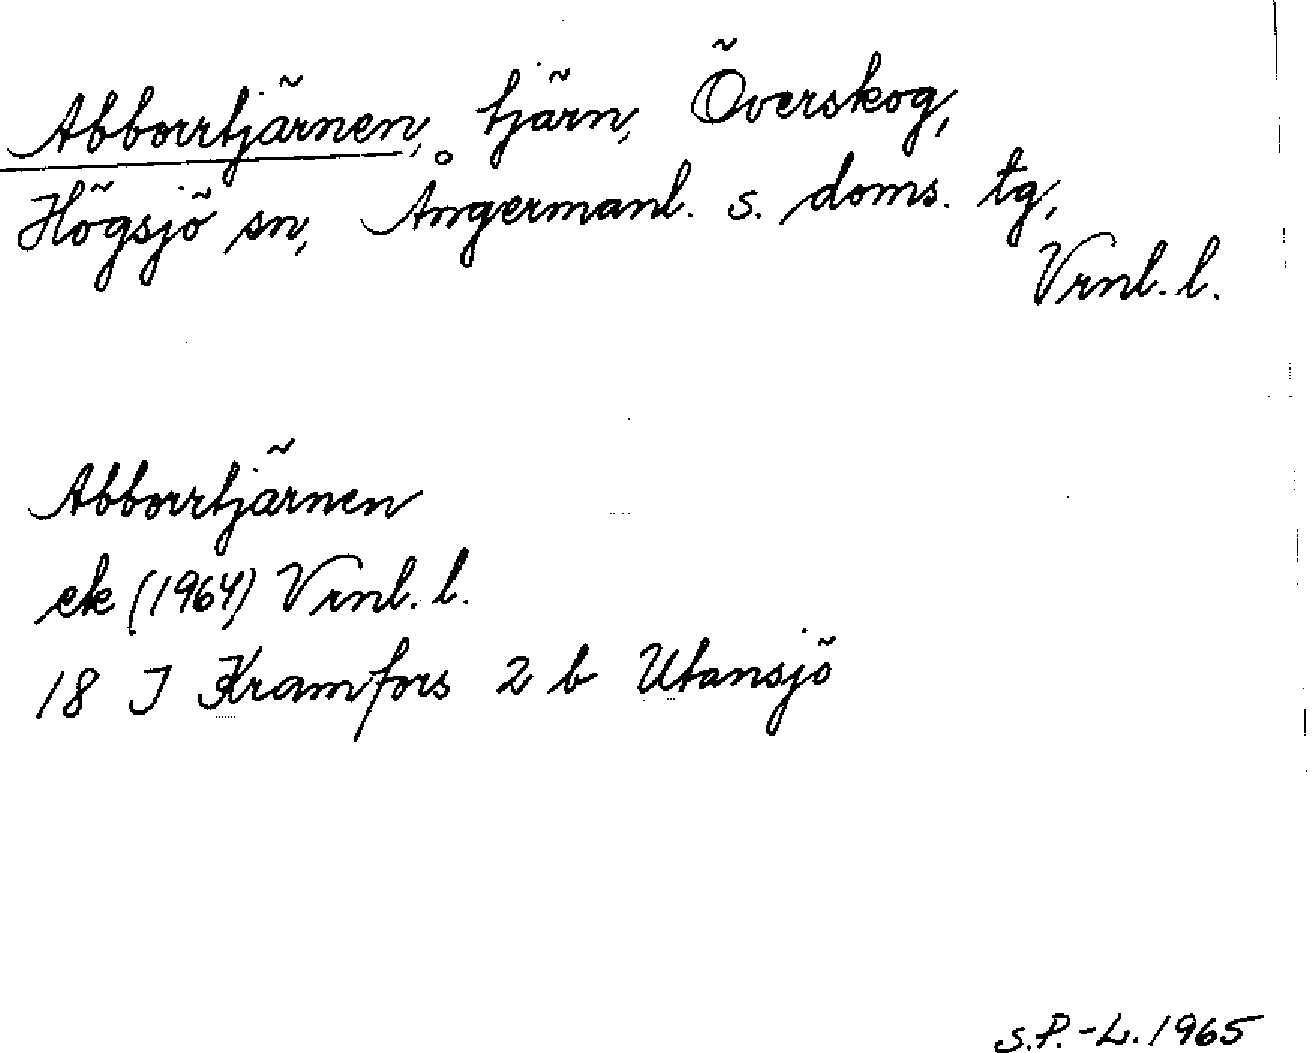 Abborrtjärnen, tjärn, Överskog,
Högsjö sn, Ångermanl. s. doms. tg,
Vrnl. l.
Abborrtjärnen
ek (1964) Vrnl. l.
18 I Kramfors 2 b Utansjö
S.P.-L. 1965